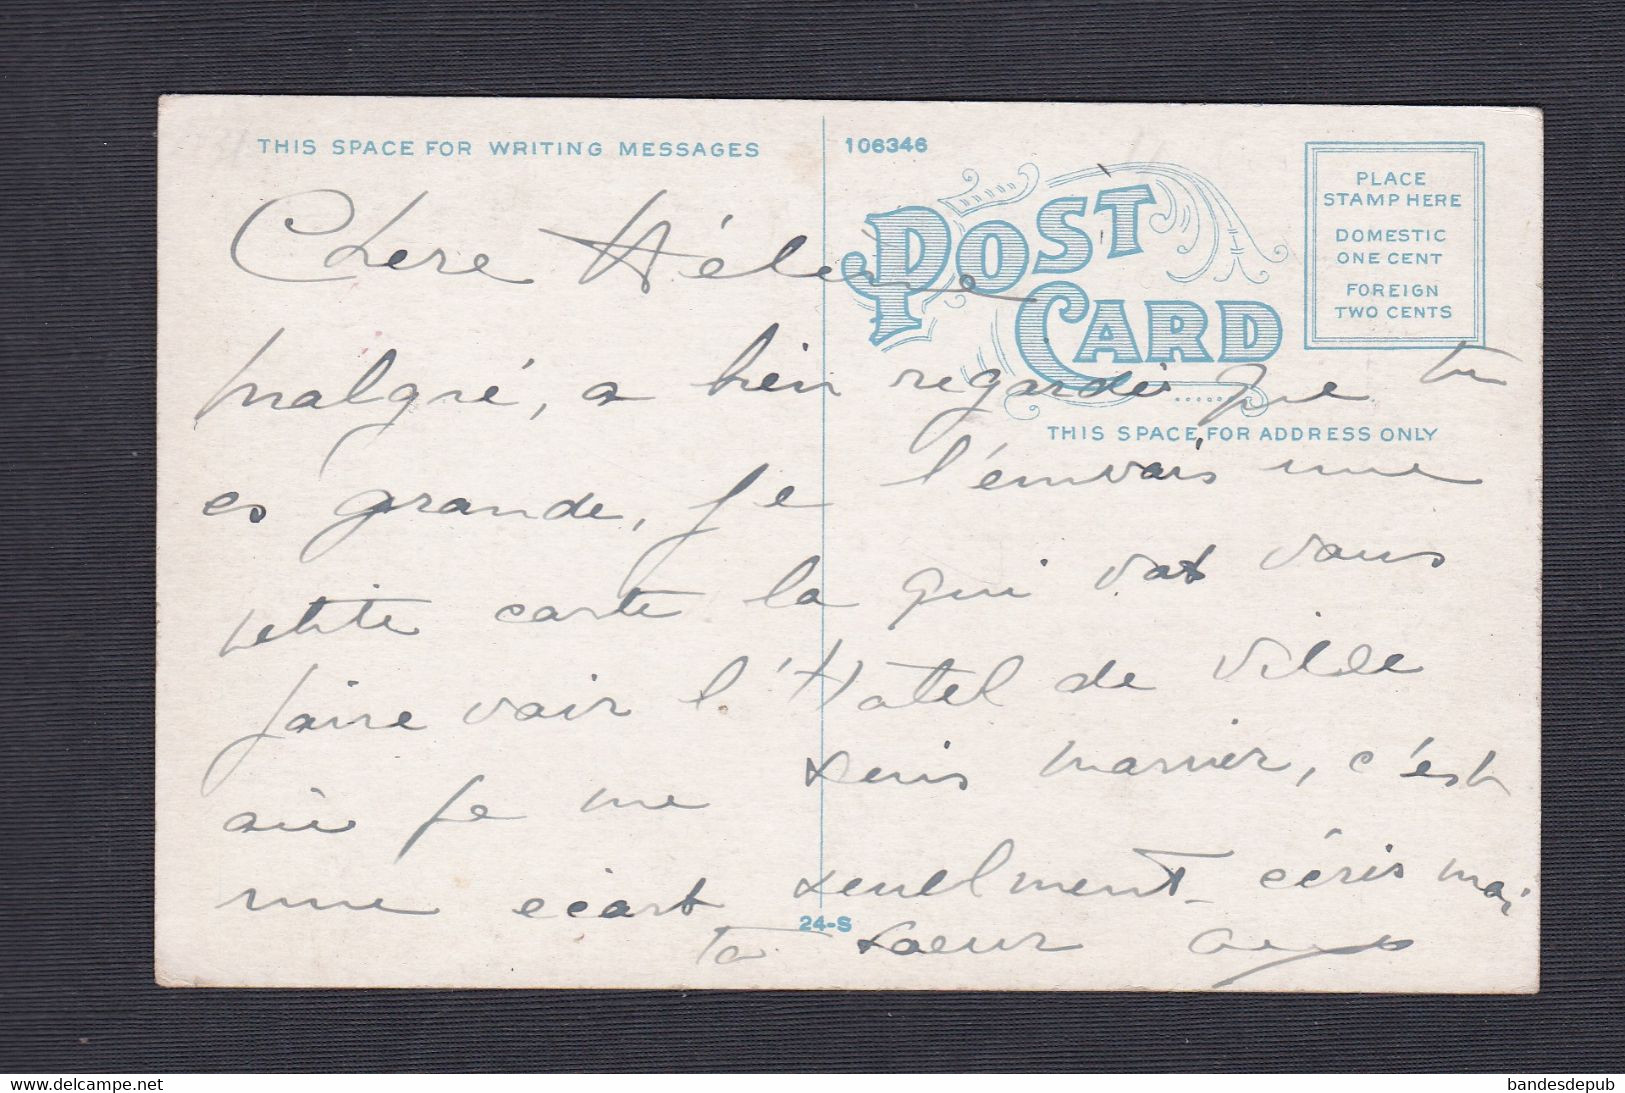 THIS SPACE FOR WRITING MESSAGES
106346
POST CARD
PLACE
STAMP HERE
DOMESTIC
ONE CENT
FOREIGN
TWO CENTS
THIS SPACE FOR ADDRESS ONLY
Chere Hélene
malgré, a bien regardé que tu
es grande, je t'envois une
petite carte la qui vat vous
faire voir l'Hotel de Vilde
où je me suis marier, c'est
une écart seuelment céris moi
ta soeur
24-S
www.delcampe.net
bandesdepub